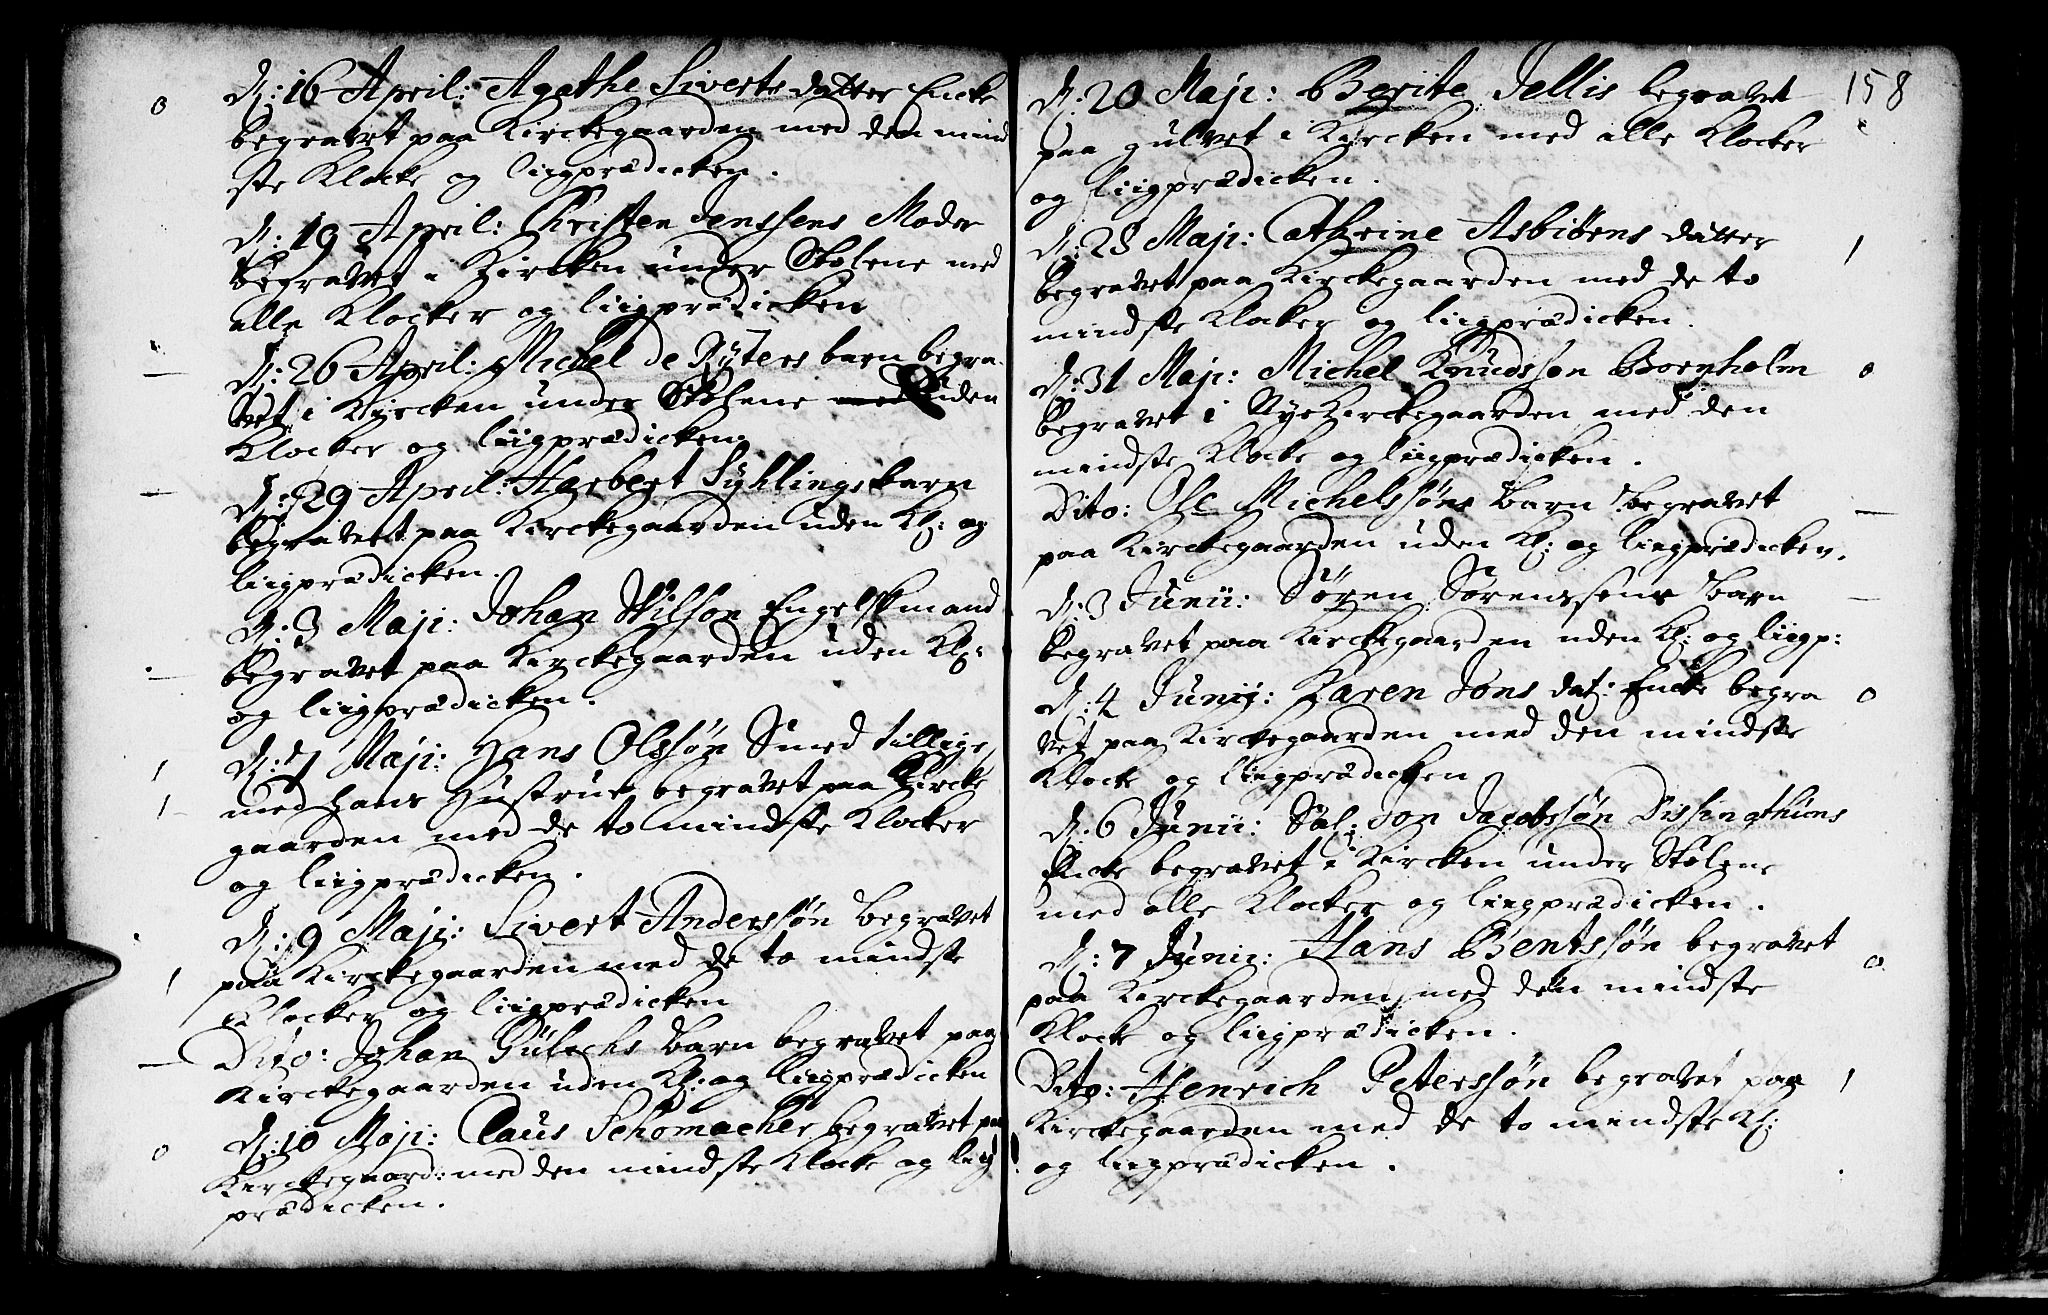 D: 16 April: Agathe Siverts datter Encke
begravet paa Kirckegaarden med den mind
ste Klocke og liigprædicken.
D: 19 April: Christen Jenssens Moder
begravet i Kircken under Stolene med
alle Klocker og liigprædicken
D: 26 April: Michel de Rÿters barn begra-
vet i Kircken under Stolene uden
Klocker og liigprædicken.
D: 29 April: Harbert Sÿhlings barn
begravet paa Kirckegaarden uden Kl: og
liigprædicken.
D: 3 Maji: Johan Wilson Engelskmand
begravet paa Kirckegaarden uden Kl:
og liigprædicken.
D: 7 Maji: Hans Olssøn Smed tillige
med hans Hustrue begravet paa Kircke
gaarden med de to mindste Klocker
og liigprædicken.
D: 9 Maji: Sivert Anderssøn begravet
paa Kirckegaarden med de to mindste
Klocker og liigprædicken
Dito: Johan barn begravet paa
Kirckegaarden uden Kl: og liigprædicken
D: 10 Maji: Claus Schomacher begravet paa
Kirckegaard: med den mindste Klocke og liig
prædicken.
158
D: 20 Maji: Berite Jellis begravet
paa gulvet i Kircken med alle Klocker
og liigprædicken.
D: 28 Maji: Cathrine Asbiøens datter
begravet paa Kirckegaarden med de to
mindste Klocker og liigprædicken.
D: 31 Maji: Michel Knudssøn Bornholm
begravet i Nye Kirckegaarden med den
mindste Klocke og liigprædicken.
Dito: Ole Michelssøns barn begravet
paa Kirckegaarden uden Kl: og liigprædicken.
D: 3 Junii: Søren Sørenssøns barn
begravet paa Kirckegaarden uden Kl: og liigp:
D: 4 Junij: Karen Jons dat: Encke begra
vet paa Kirckegaarden med den mindste
Klocke og liigprædicken
D: 6 Junii: Sal: Jon Jacobssøn
Encke begravet i Kircken under Stolene
med alle Klocker og liigprædicken.
D: 7 Junii: Hans Bentssøn begravet
paa Kirckegaarden med den mindste
Klocke og liigprædicken.
Dito: Henrich Peterssøn begravet paa
Kirckegaarden med de to mindste Kl:
og liigprædicken.